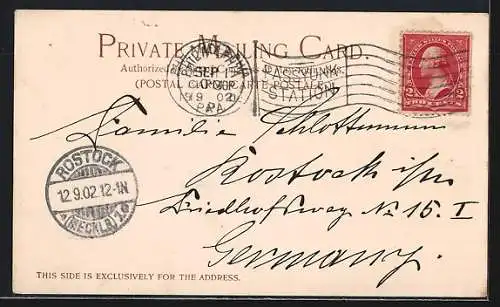 PRIVATE MAILING CARD.
Authorized
(POSTAL CARD-CARTE POSTALE)
PHILADELPHIA
SEP 1
02
PA.
PASSYUNK
STATION
2 2
TWO CENTS
Familie Schlottmann
Rostock i/m
Friedhofsweg No 15. I
Germany.
ROSTOCK
12.9.02.12-1N
(MECKLB)
THIS SIDE IS EXCLUSIVELY FOR THE ADDRESS.